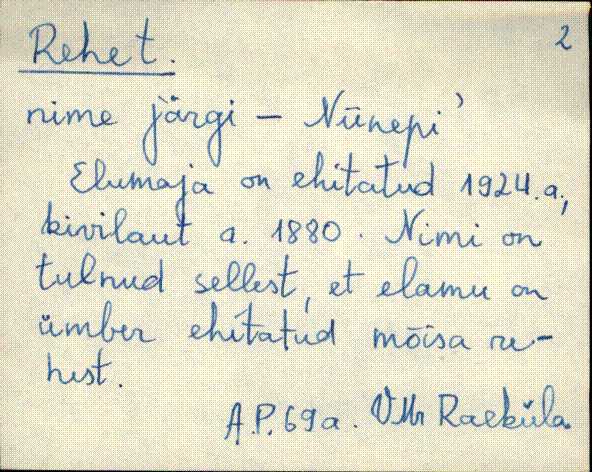 Rehet. 2
nime järgi – Nünepi'
Elumaja on ehitatud 1924.a.,
kivilaut a. 1880. Nimi on
tulnud sellest, et elamu on
ümber ehitatud mõisa re-
hest.
A.P. 69a. VMr Raeküla.